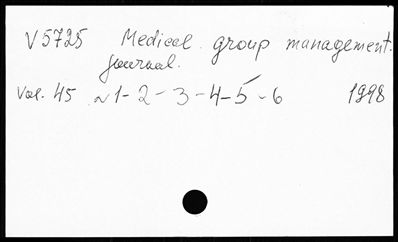 V5725 Medical group management.
Journal.
Vol. 45 N 1-2-3-4-5-6 1998